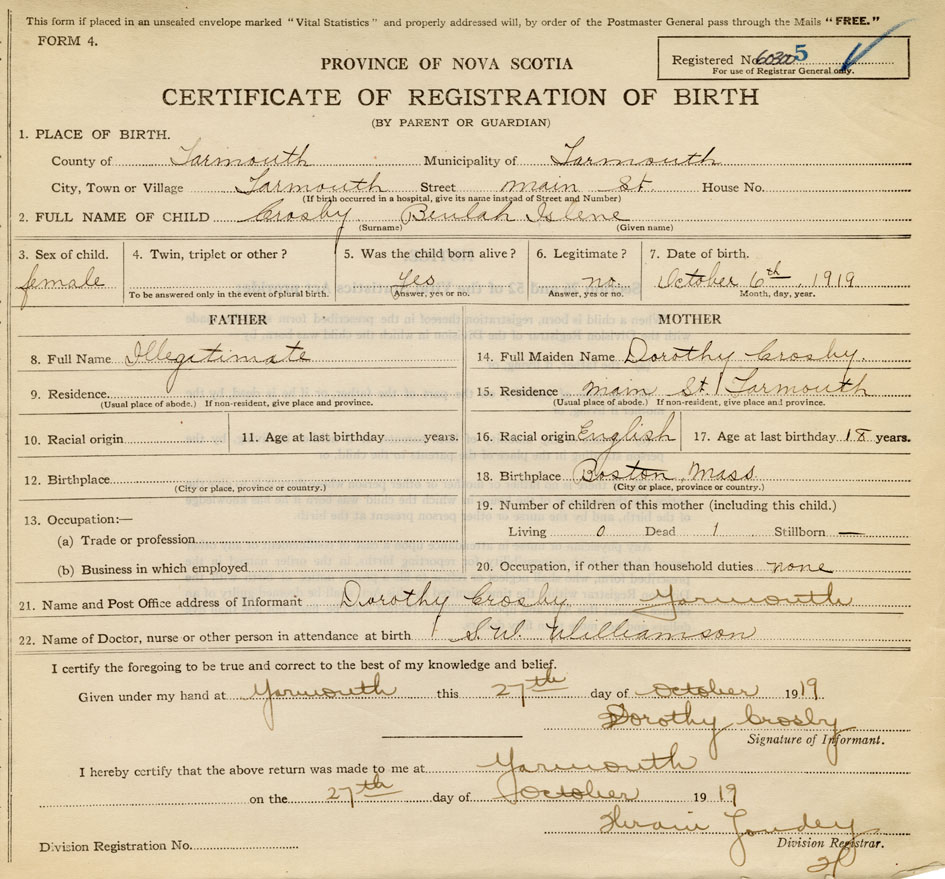 This form if placed in an unsealed envelope marked "Vital Statistics" and properly addressed will, by order of the Postmaster General pass through the Mails "FREE."
FORM 4.
Registered No. 5
For use of Registrar General only.
PROVINCE OF NOVA SCOTIA
CERTIFICATE OF REGISTRATION OF BIRTH
(BY PARENT OR GUARDIAN)
1. PLACE OF BIRTH.
County of Yarmouth Municipality of Yarmouth
City, Town or Village Yarmouth Street Main St. House No.
(If birth occurred in a hospital, give its name instead of Street and Number)
2. FULL NAME OF CHILD Crosby Beulah Islene
(Surname) (Given name)
3. Sex of child. 4. Twin, triplet or other? 5. Was the child born alive? 6. Legitimate? 7. Date of birth.
female Yes no. October 6th, 1919
To be answered only in the event of plural birth. Answer, yes or no. Answer, yes or no. Month, day, year.
FATHER MOTHER
8. Full Name Illegitimate 14. Full Maiden Name Dorothy Crosby.
9. Residence. 15. Residence Main St. Yarmouth
(Usual place of abode.) If non-resident, give place and province. (Usual place of abode.) If non-resident, give place and province.
10. Racial origin 11. Age at last birthday years. 16. Racial origin English 17. Age at last birthday 18 years.
12. Birthplace 18. Birthplace Boston, Mass
(City or place, province or country.) (City or place, province or country.)
19. Number of children of this mother (including this child.)
13. Occupation:—
Living 0 Dead 1 Stillborn —
(a) Trade or profession
(b) Business in which employed 20. Occupation, if other than household duties none
21. Name and Post Office address of Informant Dorothy Crosby Yarmouth
22. Name of Doctor, nurse or other person in attendance at birth S.W. Williamson
I certify the foregoing to be true and correct to the best of my knowledge and belief.
Given under my hand at Yarmouth this 27th day of October 1919
Dorothy Crosby
Signature of Informant.
I hereby certify that the above return was made to me at Yarmouth
on the 27th day of October 1919
Division Registration No. Division Registrar.